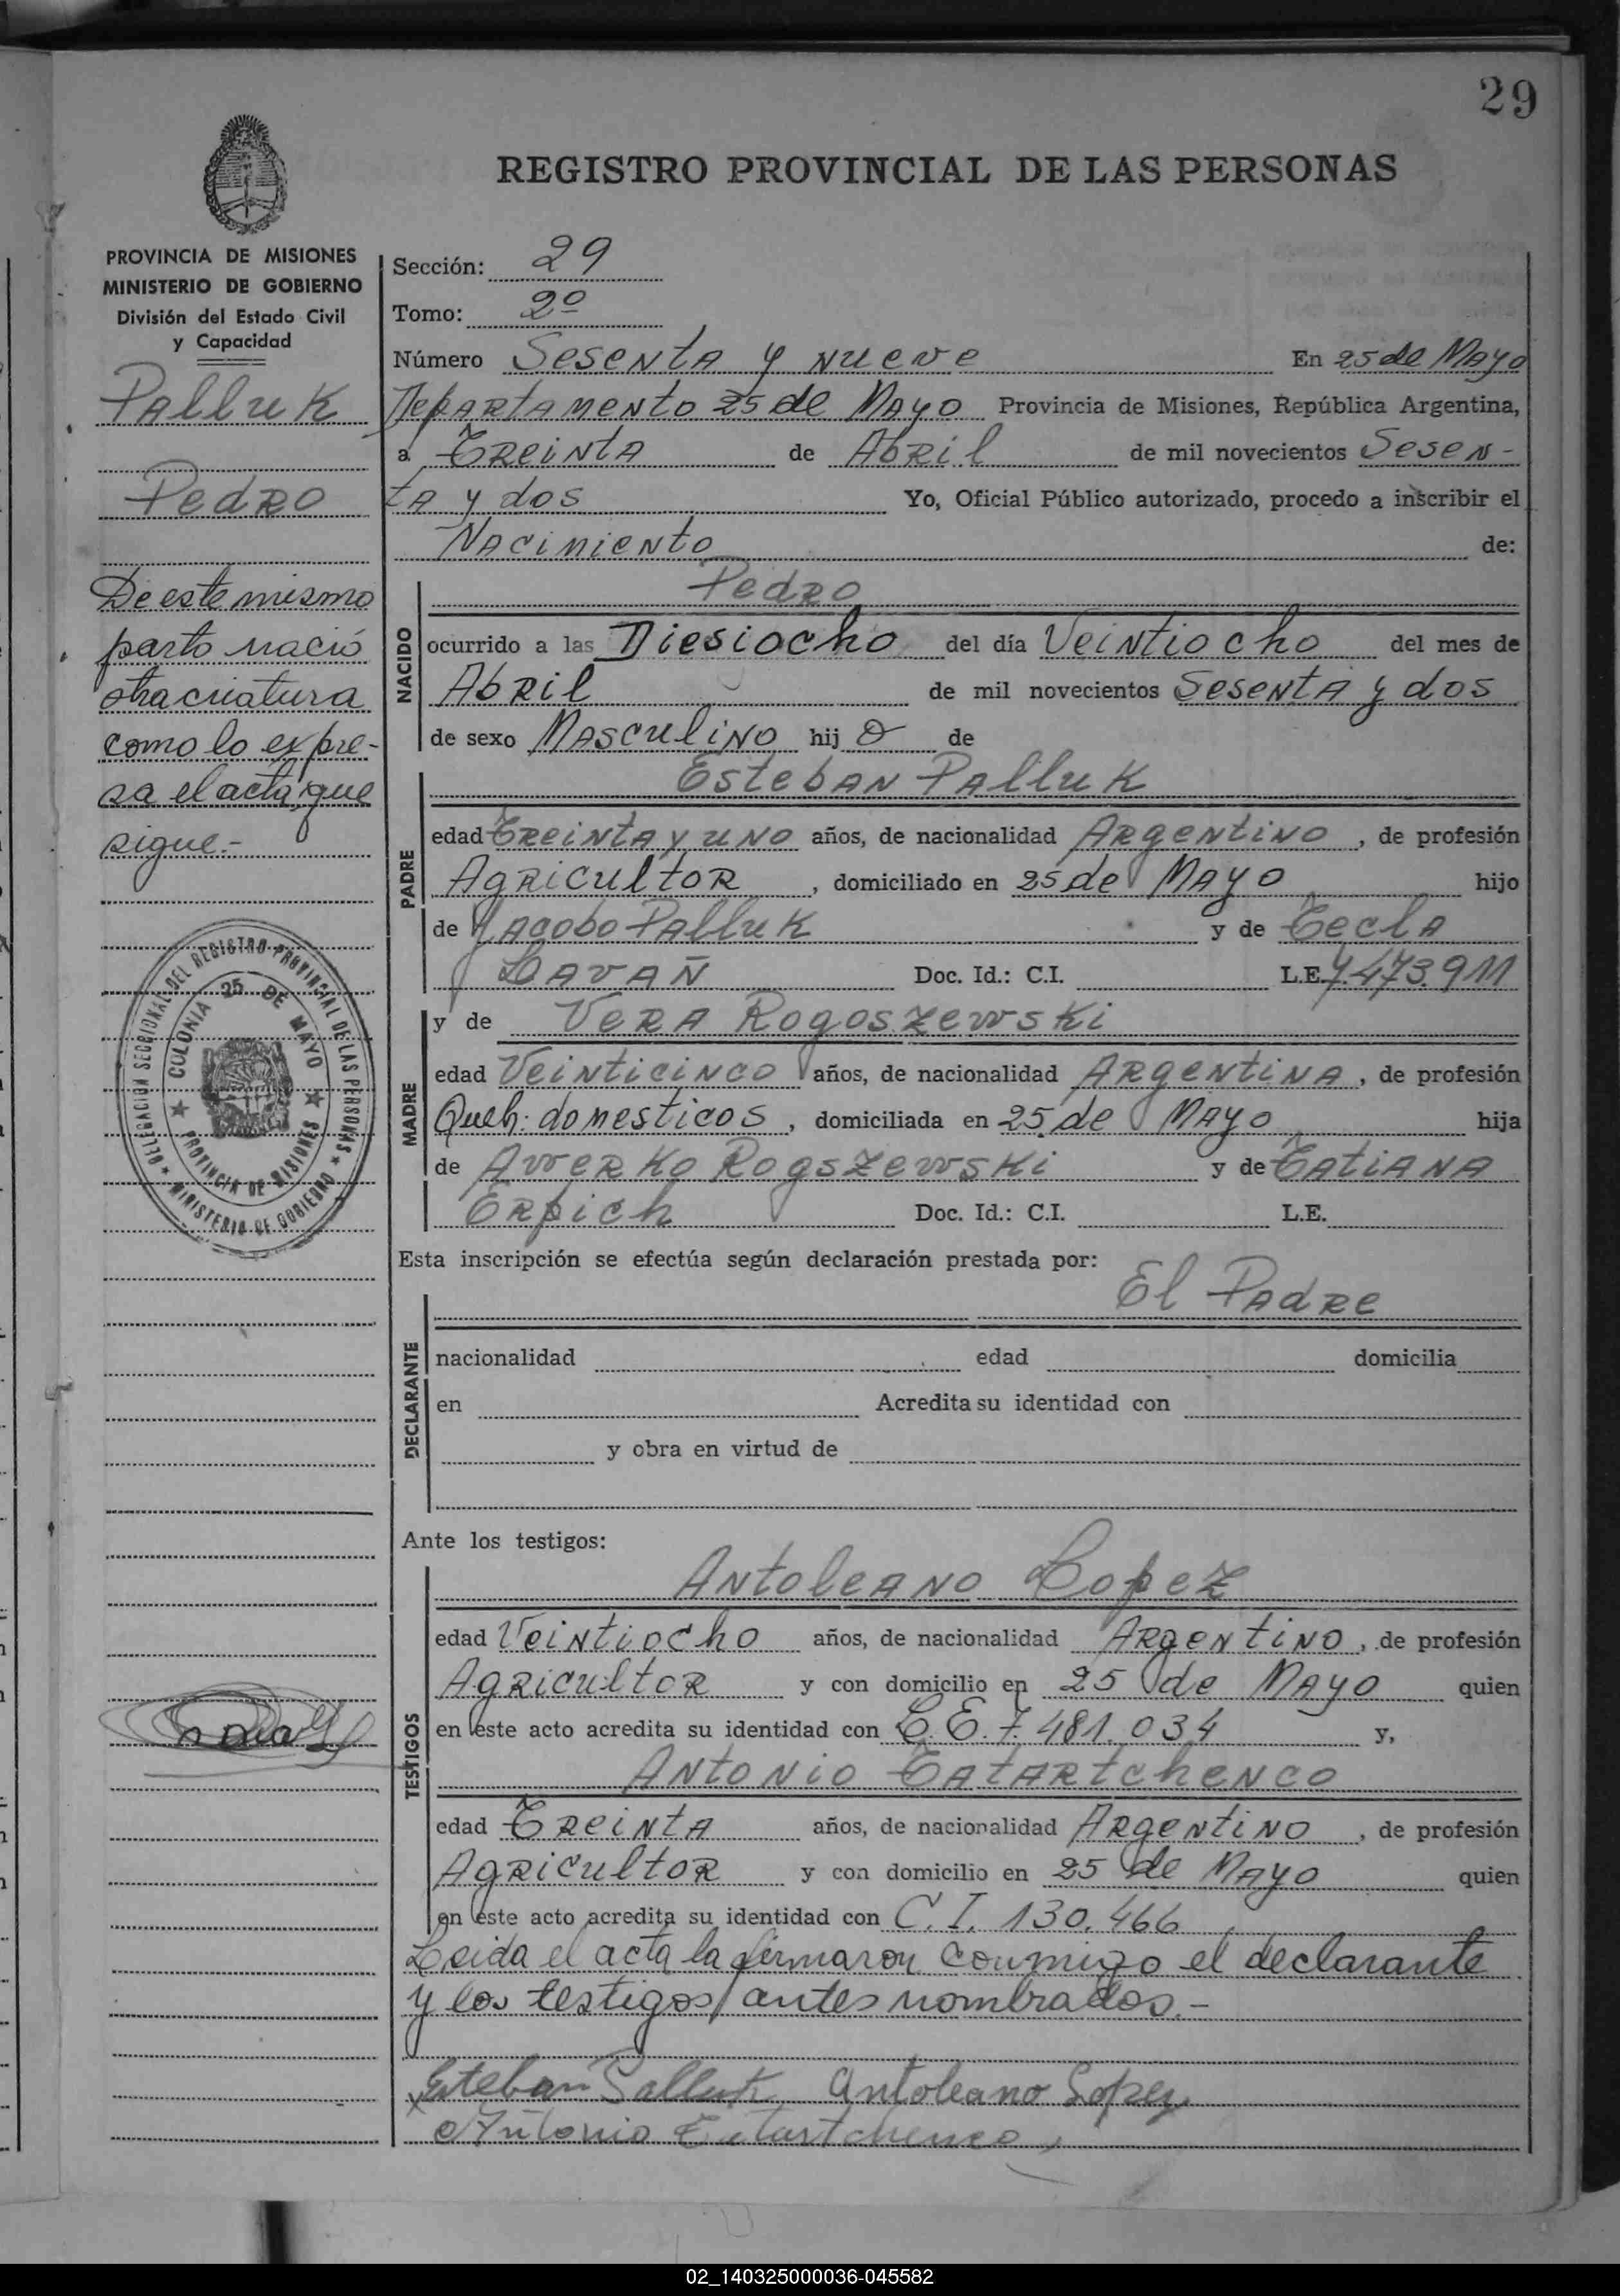 29
REGISTRO PROVINCIAL DE LAS PERSONAS
PROVINCIA DE MISIONES
MINISTERIO DE GOBIERNO
División del Estado Civil
y Capacidad
Palluk
Pedro
De este mismo
parto nació
otra criatura
como lo expre-
sa el acta que
sigue.-
DELEGACIÓN SECCIONAL DEL REGISTRO PROVINCIAL DE LAS PERSONAS
MINISTERIO DE GOBIERNO
COLONIA 25 DE MAYO
PROVINCIA DE MISIONES
Sección: 29
Tomo: 2º
Número Sesenta y nueve En 25 de Mayo
Departamento 25 de Mayo Provincia de Misiones, República Argentina,
a Treinta de Abril de mil novecientos Sesen-
ta y dos Yo, Oficial Público autorizado, procedo a inscribir el
Nacimiento de:
Pedro
NACIDO
ocurrido a las Diesiocho del día Veintiocho del mes de
Abril de mil novecientos Sesenta y dos
de sexo Masculino hij o de
Esteban Palluk
PADRE
edad Treinta y uno años, de nacionalidad Argentino, de profesión
Agricultor, domiciliado en 25 de Mayo hijo
de Jacobo Palluk y de Tecla
Lavañ Doc. Id.: C.I. L.E. 7.473.911
y de Vera Rogoszewski
MADRE
edad Veinticinco años, de nacionalidad Argentina, de profesión
Queh. domesticos, domiciliada en 25 de Mayo hija
de Awerko Rogszewski y de Tatiana
Erpich Doc. Id.: C.I. L.E.
Esta inscripción se efectúa según declaración prestada por:
El Padre
DECLARANTE
nacionalidad edad domicilia
en Acredita su identidad con
y obra en virtud de
Ante los testigos:
Antoleano Lopez
TESTIGOS
edad Veintiocho años, de nacionalidad Argentino, de profesión
Agricultor y con domicilio en 25 de Mayo quien
en este acto acredita su identidad con L.E. 7.481.034 y,
Antonio Tatartchenco
edad Treinta años, de nacionalidad Argentino, de profesión
Agricultor y con domicilio en 25 de Mayo quien
en este acto acredita su identidad con C.I. 130.466
Leida el acta la firmaron conmigo el declarante
y los testigos antes nombrados.-
Esteban Palluk Antoleano Lopez
Antonio Tatartchenco
02_140325000036-045582